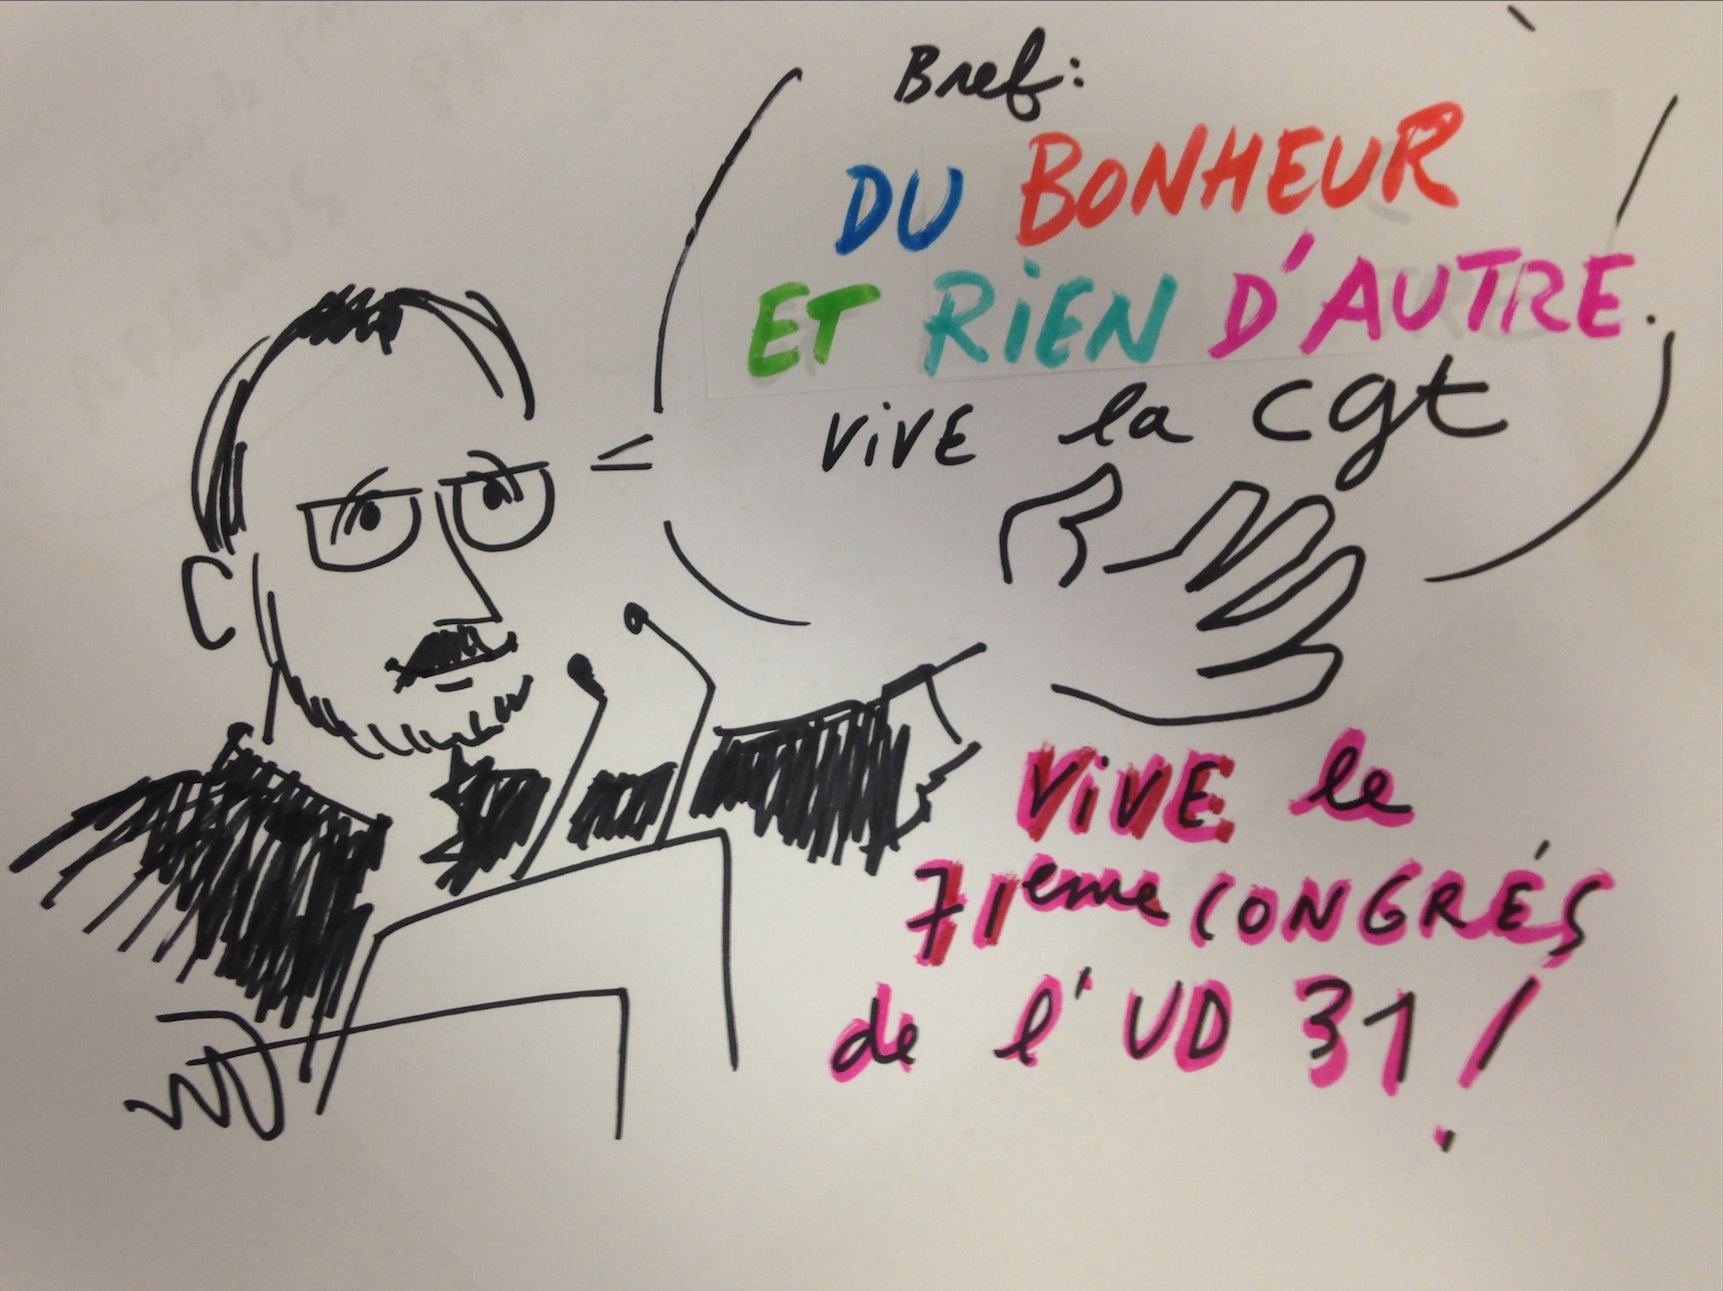 Bref:
DU BONHEUR
ET RIEN D'AUTRE.
VIVE la cgt
VIVE le
71eme CONGRÉS
de l'UD 31!